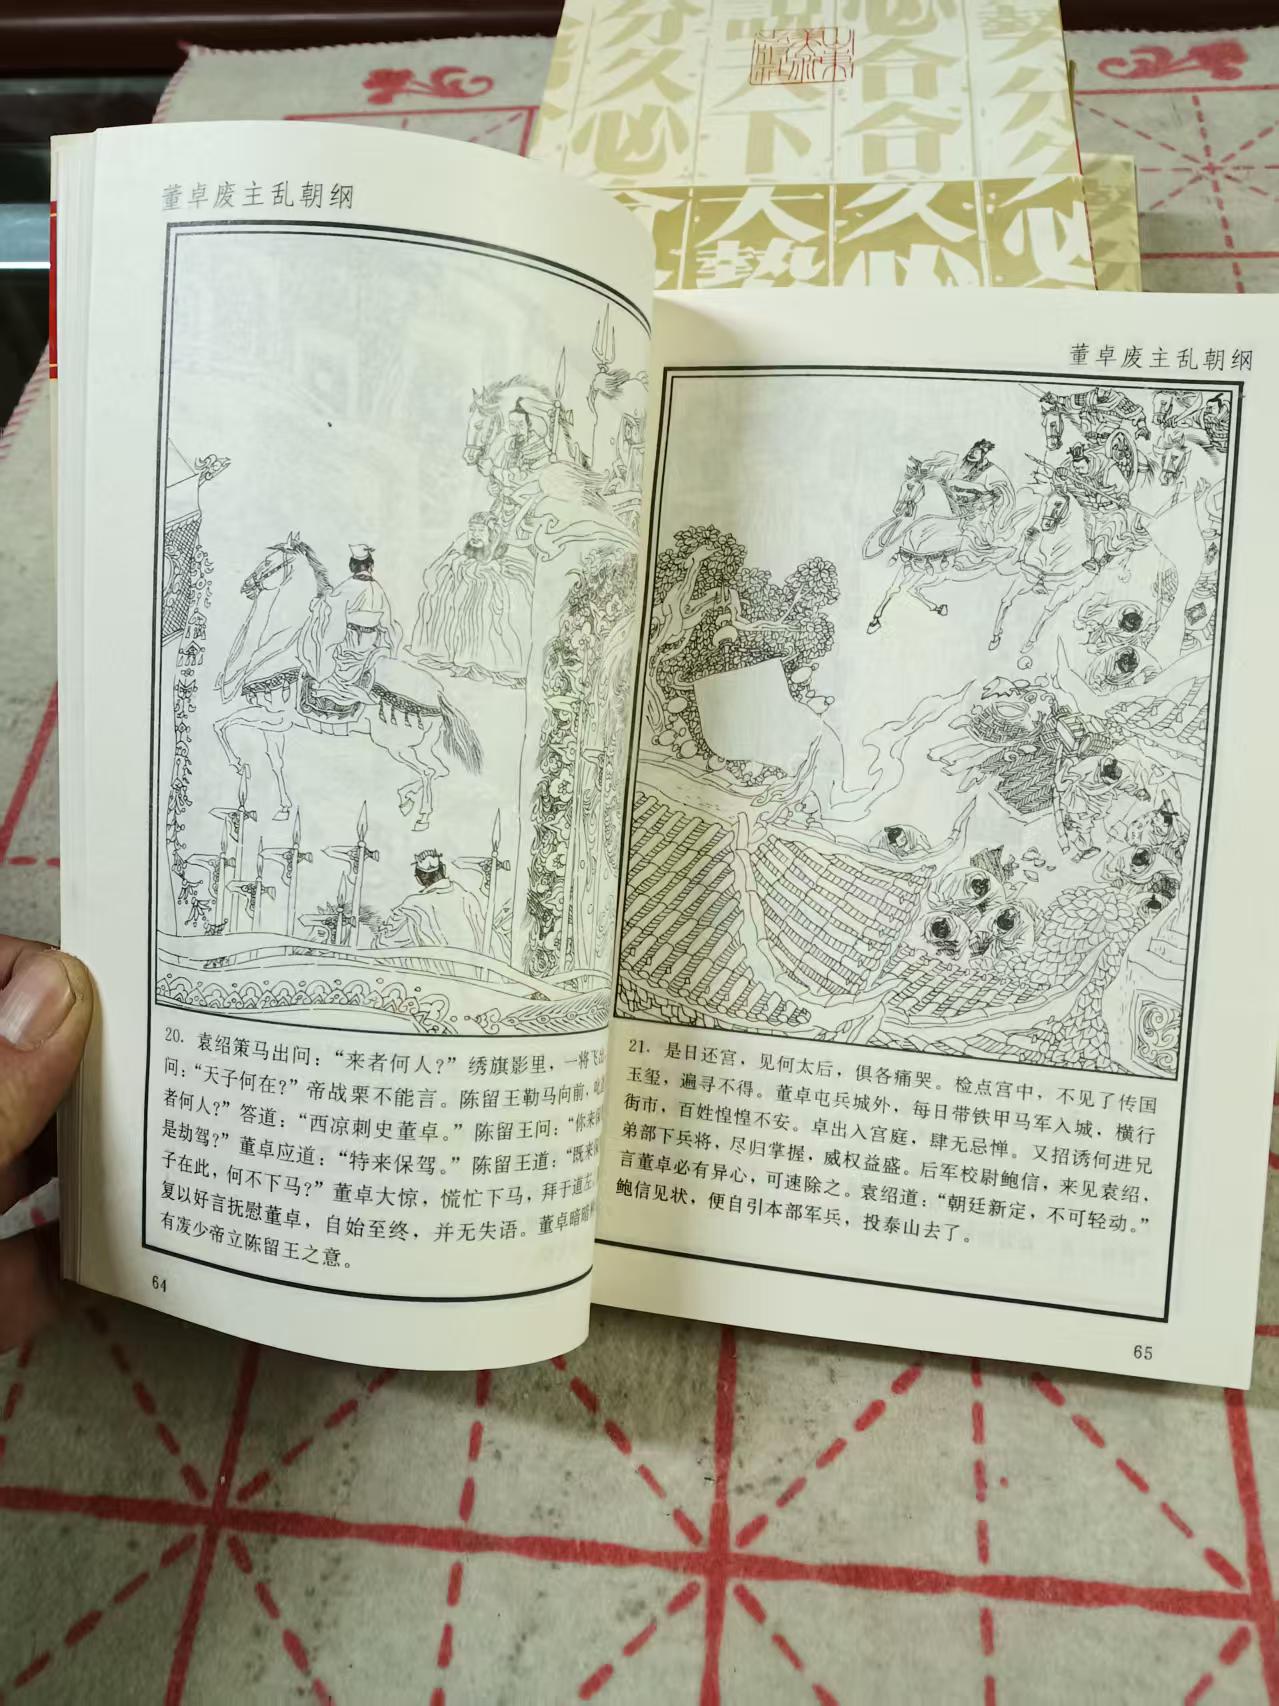 分久必
話天下
必合合
勢分久
大勢
久必
必
董卓废主乱朝纲
20. 袁绍策马出问：“来者何人？”绣旗影里，一将飞出
问：“天子何在？”帝战栗不能言。陈留王勒马向前，叱
者何人？”答道：“西凉刺史董卓。”陈留王问：“你来保
是劫驾？”董卓应道：“特来保驾。”陈留王道：“既来保
子在此，何不下马？”董卓大惊，慌忙下马，拜于道左。
复以好言抚慰董卓，自始至终，并无失语。董卓暗暗
有废少帝立陈留王之意。
64
董卓废主乱朝纲
21. 是日还宫，见何太后，俱各痛哭。检点宫中，不见了传国
玉玺，遍寻不得。董卓屯兵城外，每日带铁甲马军入城，横行
街市，百姓惶惶不安。卓出入宫庭，肆无忌惮。又招诱何进兄
弟部下兵将，尽归掌握，威权益盛。后军校尉鲍信，来见袁绍，
言董卓必有异心，可速除之。袁绍道：“朝廷新定，不可轻动。”
鲍信见状，便自引本部军兵，投泰山去了。
65